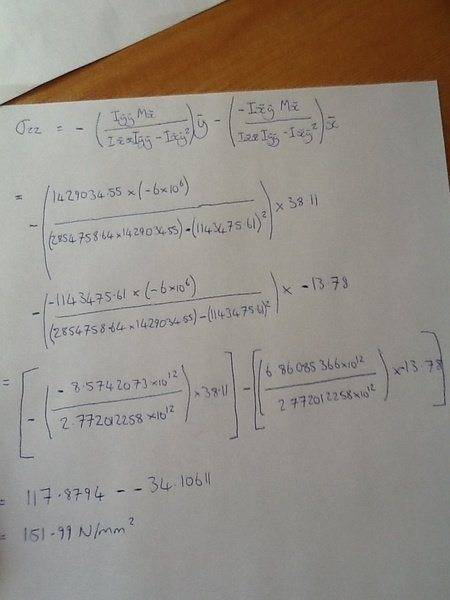 σzz = - (Iȳȳ Mx̄ / Ix̄x̄ Iȳȳ - Ix̄ȳ²) ȳ - (-Ix̄ȳ Mx̄ / Ix̄x̄ Iȳȳ - Ix̄ȳ²) x̄
= - (1429034.55 × (-6×10⁶) / (2854758.64 × 1429034.55) - (1143475.61)²) × 38.11
- (-1143475.61 × (-6×10⁶) / (2854758.64 × 1429034.55) - (1143475.61)²) × -13.78
= [- (-8.5742073×10¹² / 2.772012258×10¹²) × 38.11] - [(6.86085366×10¹² / 2.772012258×10¹²) × -13.78]
= 117.8794 - - 34.10611
= 151.99 N/mm²